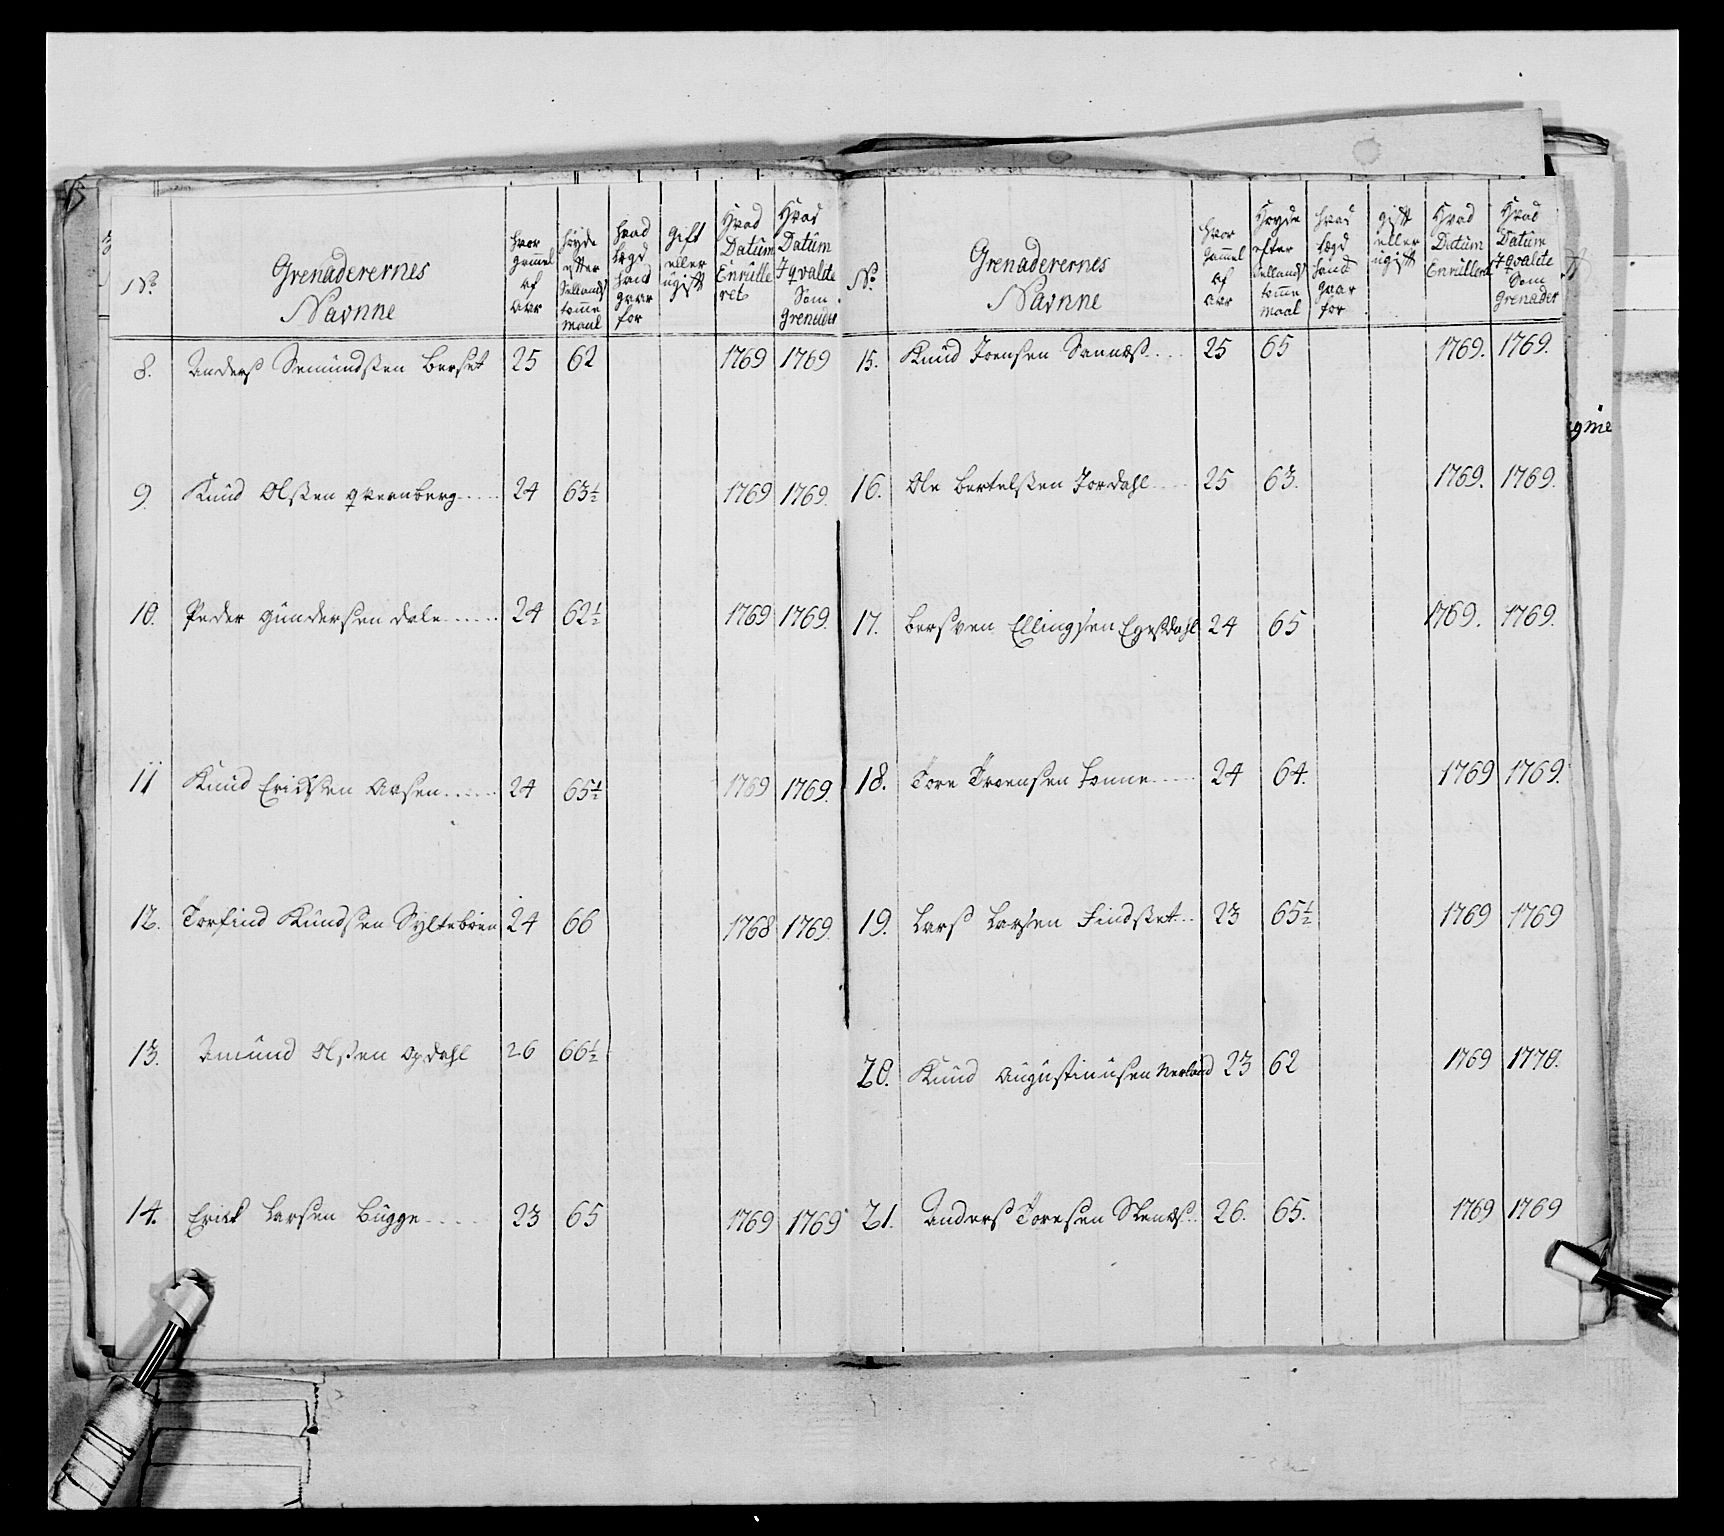 No.
Grenaderernes
Navnne
hvor gammel af aar
höyde efter Sellands tomme maal
hvad lægd hand gaar for
gift eller ugift
Hvad Datum Enrulleret
Hvad Datum Jqvalde Som Grenader
8. Anders Semundsen Berset 25 62 1769 1769
9. Knud Olsen qvernberg 24 63½ 1769 1769.
10. Peder gundersen dale 24 62½ 1769 1769.
11 Knud Ericksen Aasen 24 65½ 1769 1769.
12. Torfind Knudsen Syltebøen 24 66 1768 1769.
13. Amund Olsen Opdahl 26 66½
14. Erick Larsen Bugge 23 65 1769 1769
No.
Grenaderernes
Navnne
hvor gammel af aar
Høyde efter Sellands tomme maal
hvad lægd hand gaar for
gift eller ugift
Hvad Datum Enrulleret
Hvad Datum Jqvalde Som Grenader
15. Knud Joensen Sannæs 25 65 1769. 1769.
16. Ole Bertelsen Jordahl 25 63. 1769. 1769.
17. Bersven Ellingsen Egesdahl 24 65 1769. 1769.
18. Tore Troensen Tonne 24 64. 1769 1769.
19. Lars Larsen Findset 23 65½ 1769 1769
20. Knud Augustinusen Nerland 23 62 1769 1770.
21. Anders Toresen Stenæs 26. 65. 1769 1769